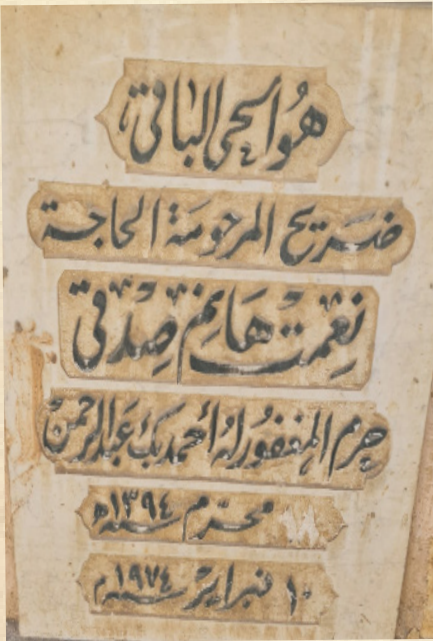 هُوَ الحي الباقي
ضريح المرحومة الحاجة
نِعمت هَانِم صِدقي
حرم المغفور له أحمد بك عبد الرحمن
محرّم سنة ١٣٩٤ ه
١٠ فبراير سنة ١٩٧٤ م